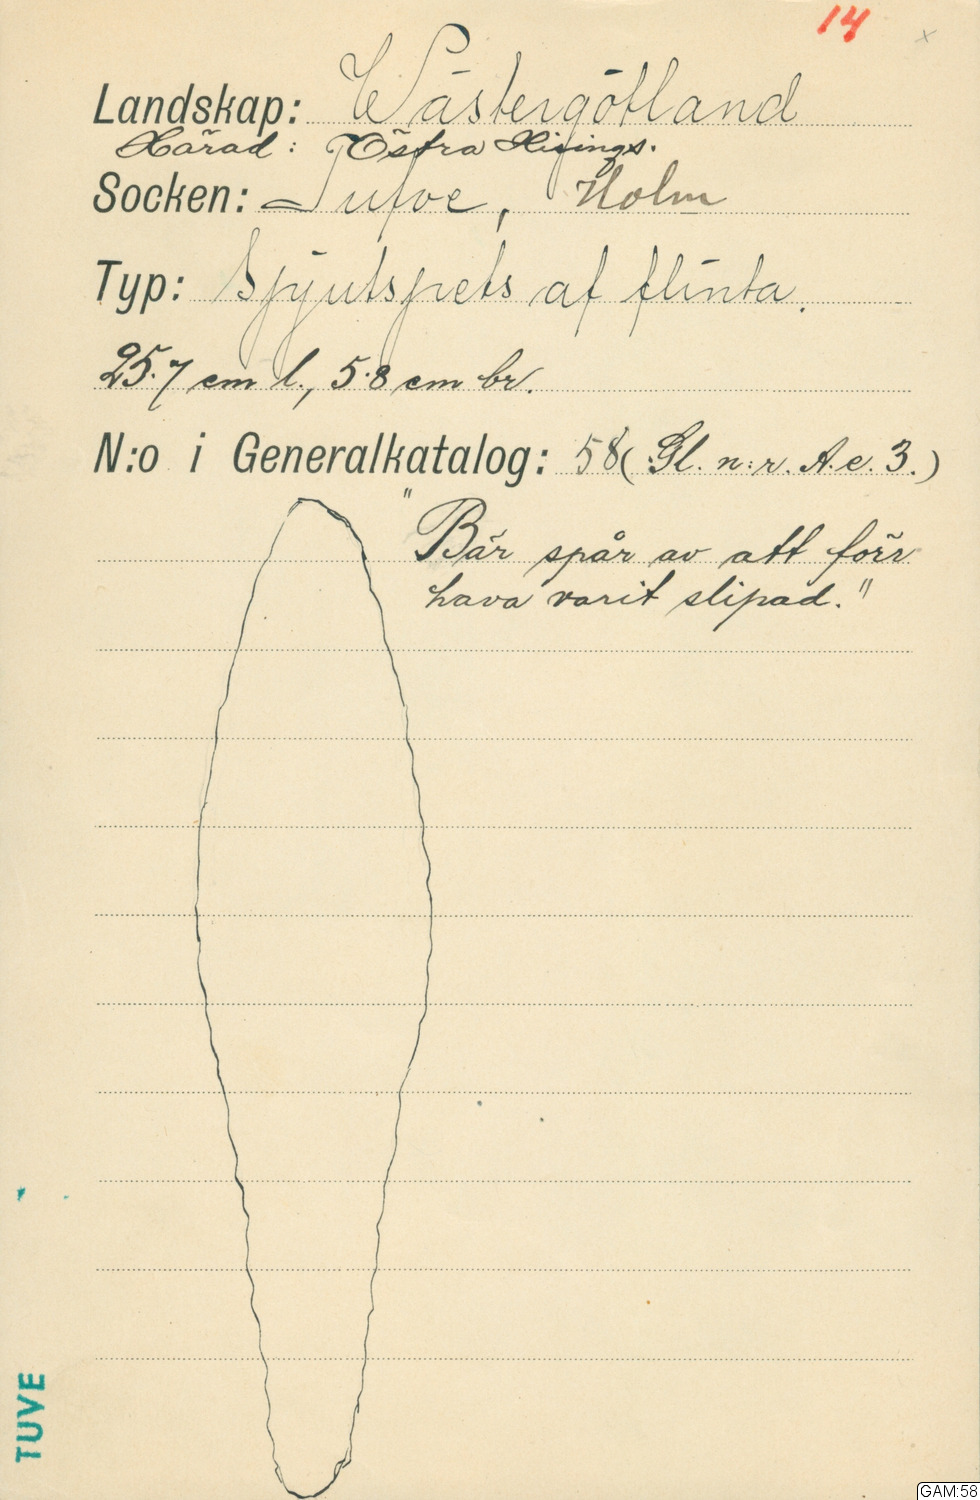 14 x
Landskap: Wästergötland
Härad: Östra Hisings.
Socken: Tufve, Holm
Typ: Spjutspets af flinta.
25.7 cm l., 5.8 cm br.
N:o i Generalkatalog: 58 (Gl. n:r. A.c. 3.)
"Bär spår av att förr
hava varit slipad."
TUVE
GAM:58